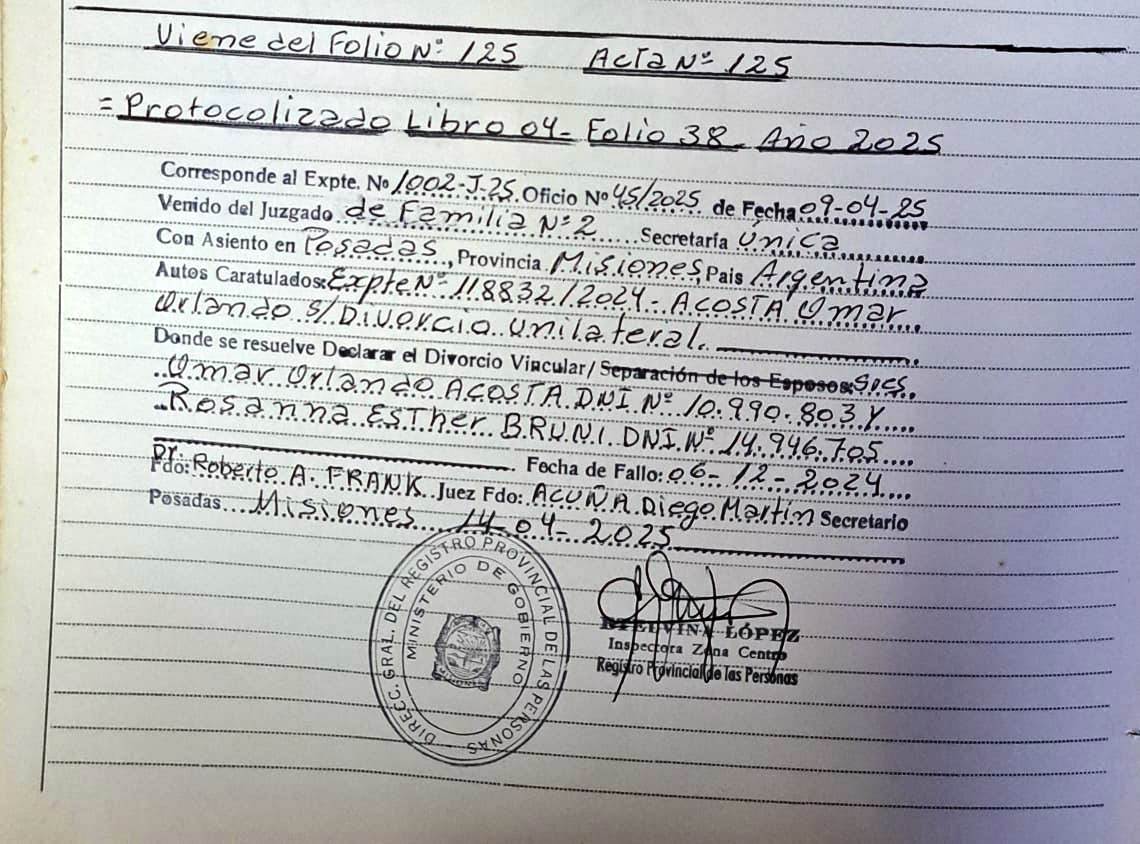 Viene del Folio Nº 125 Acta Nº 125
= Protocolizado Libro 04- Folio 38- Año 2025
Corresponde al Expte. Nº 1002-J-25. Oficio Nº 45/2025 de Fecha 09-04-25
Venido del Juzgado de Familia Nº 2 Secretaría Única
Con Asiento en Posadas, Provincia Misiones, País Argentina
Autos Caratulados: Expte Nº 118832/2024- ACOSTA Omar
Orlando s/ Divorcio unilateral.
Donde se resuelve Declarar el Divorcio Vincular/ Separación de los Esposos: Sres.
Omar Orlando ACOSTA DNI Nº 10.990.803 Y
Rosanna Esther BRUNI DNI Nº 14.946.705
Fecha de Fallo: 06-12-2024
Fdo: Dr. Roberto A. FRANK Juez Fdo: ACUÑA Diego Martín Secretario
Posadas Misiones 14-04-2025
DIRECC. GRAL. DEL REGISTRO PROVINCIAL DE LAS PERSONAS
MINISTERIO DE GOBIERNO
ETELVINA LÓPEZ
Inspectora Zona Centro
Registro Provincial de las Personas